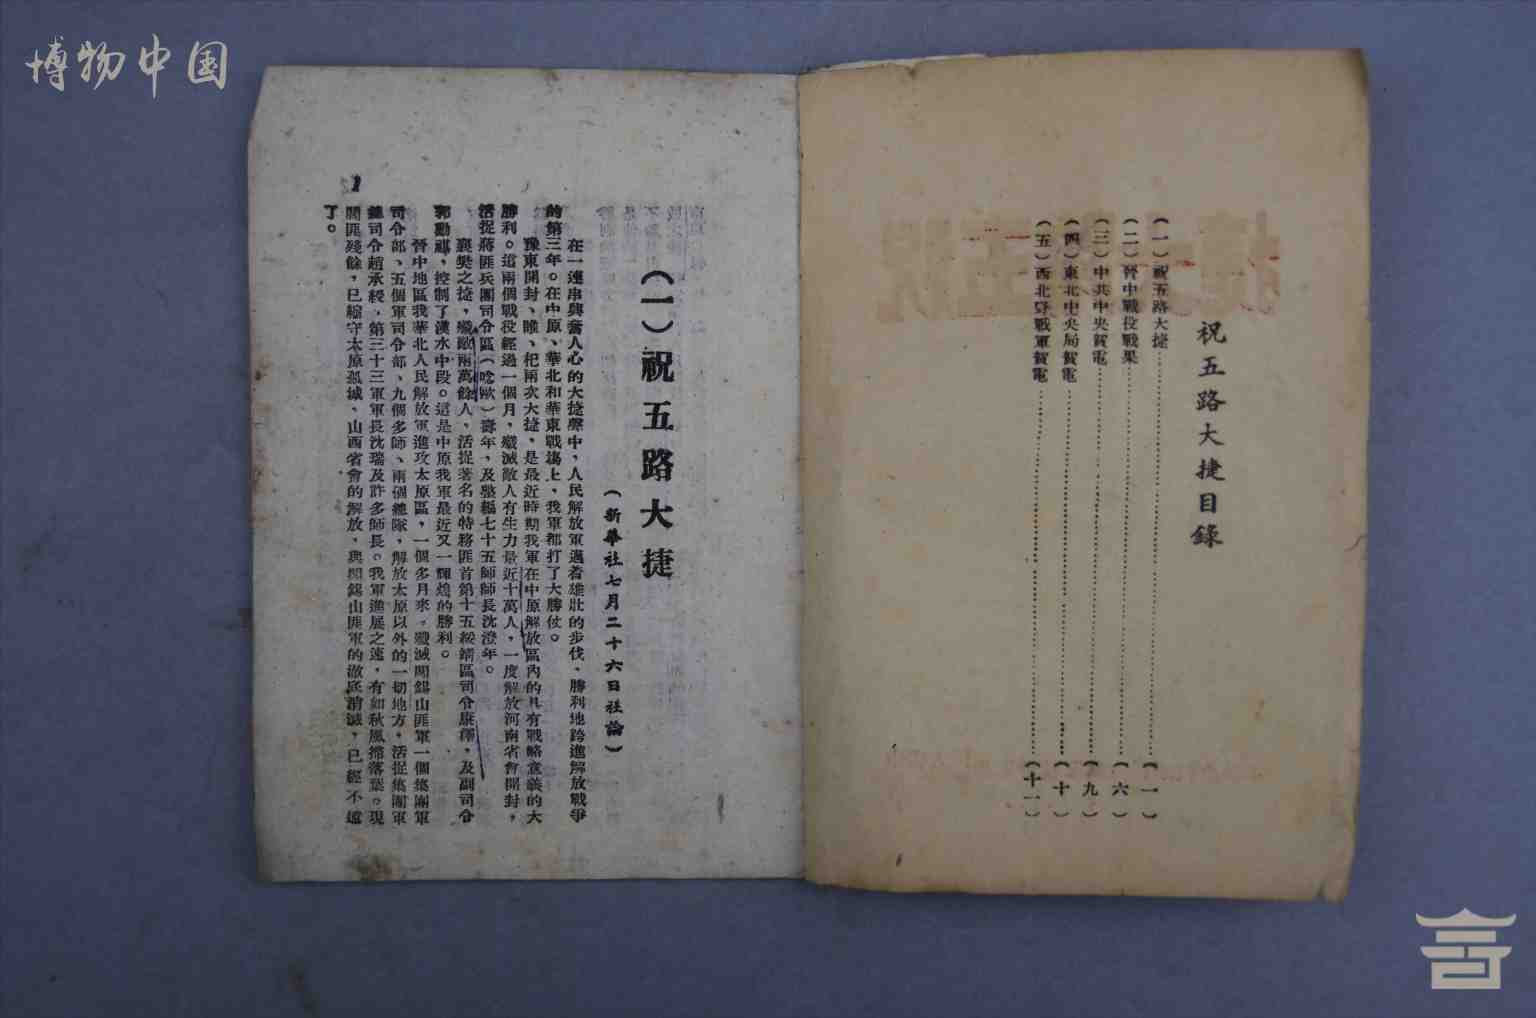 博物中国
祝五路大捷目錄
(一)祝五路大捷……(一)
(二)晉中戰役戰果……(六)
(三)中共中央賀電……(九)
(四)東北中央局賀電……(十)
(五)西北野戰軍賀電……(十一)
(一)祝五路大捷
(新華社七月二十六日社論)
在一連串興奮人心的大捷聲中，人民解放軍邁着雄壯的步伐，勝利地跨進解放戰爭
的第三年。在中原、華北和華東戰場上，我軍都打了大勝仗。
豫東開封、睢、杞兩次大捷，是最近時期我軍在中原解放區內的具有戰略意義的大
勝利。這兩個戰役經過一個月，殲滅敵人有生力量近十萬人，一度解放河南省會開封，
活捉蔣匪兵團司令區(唸歐)壽年，及整編七十五師師長沈澄年。
襄樊之捷，殲敵兩萬餘人，活捉著名的特務匪首第十五綏靖區司令康澤，及副司令
郭勳祺，控制了漢水中段。這是中原我軍最近又一輝煌的勝利。
晉中地區我華北人民解放軍進攻太原區，一個多月來。殲滅閻錫山匪軍一個集團軍
司令部、五個軍司令部、九個多師、兩個總隊，解放太原以外的一切地方，活捉集團軍
總司令趙承綬，第三十三軍軍長沈瑞及許多師長。我軍進展之速，有如秋風掃落葉。現
閻匪殘餘，已縮守太原孤城、山西省會的解放，與閻錫山匪軍的澈底消滅，已經不遠
了。
1